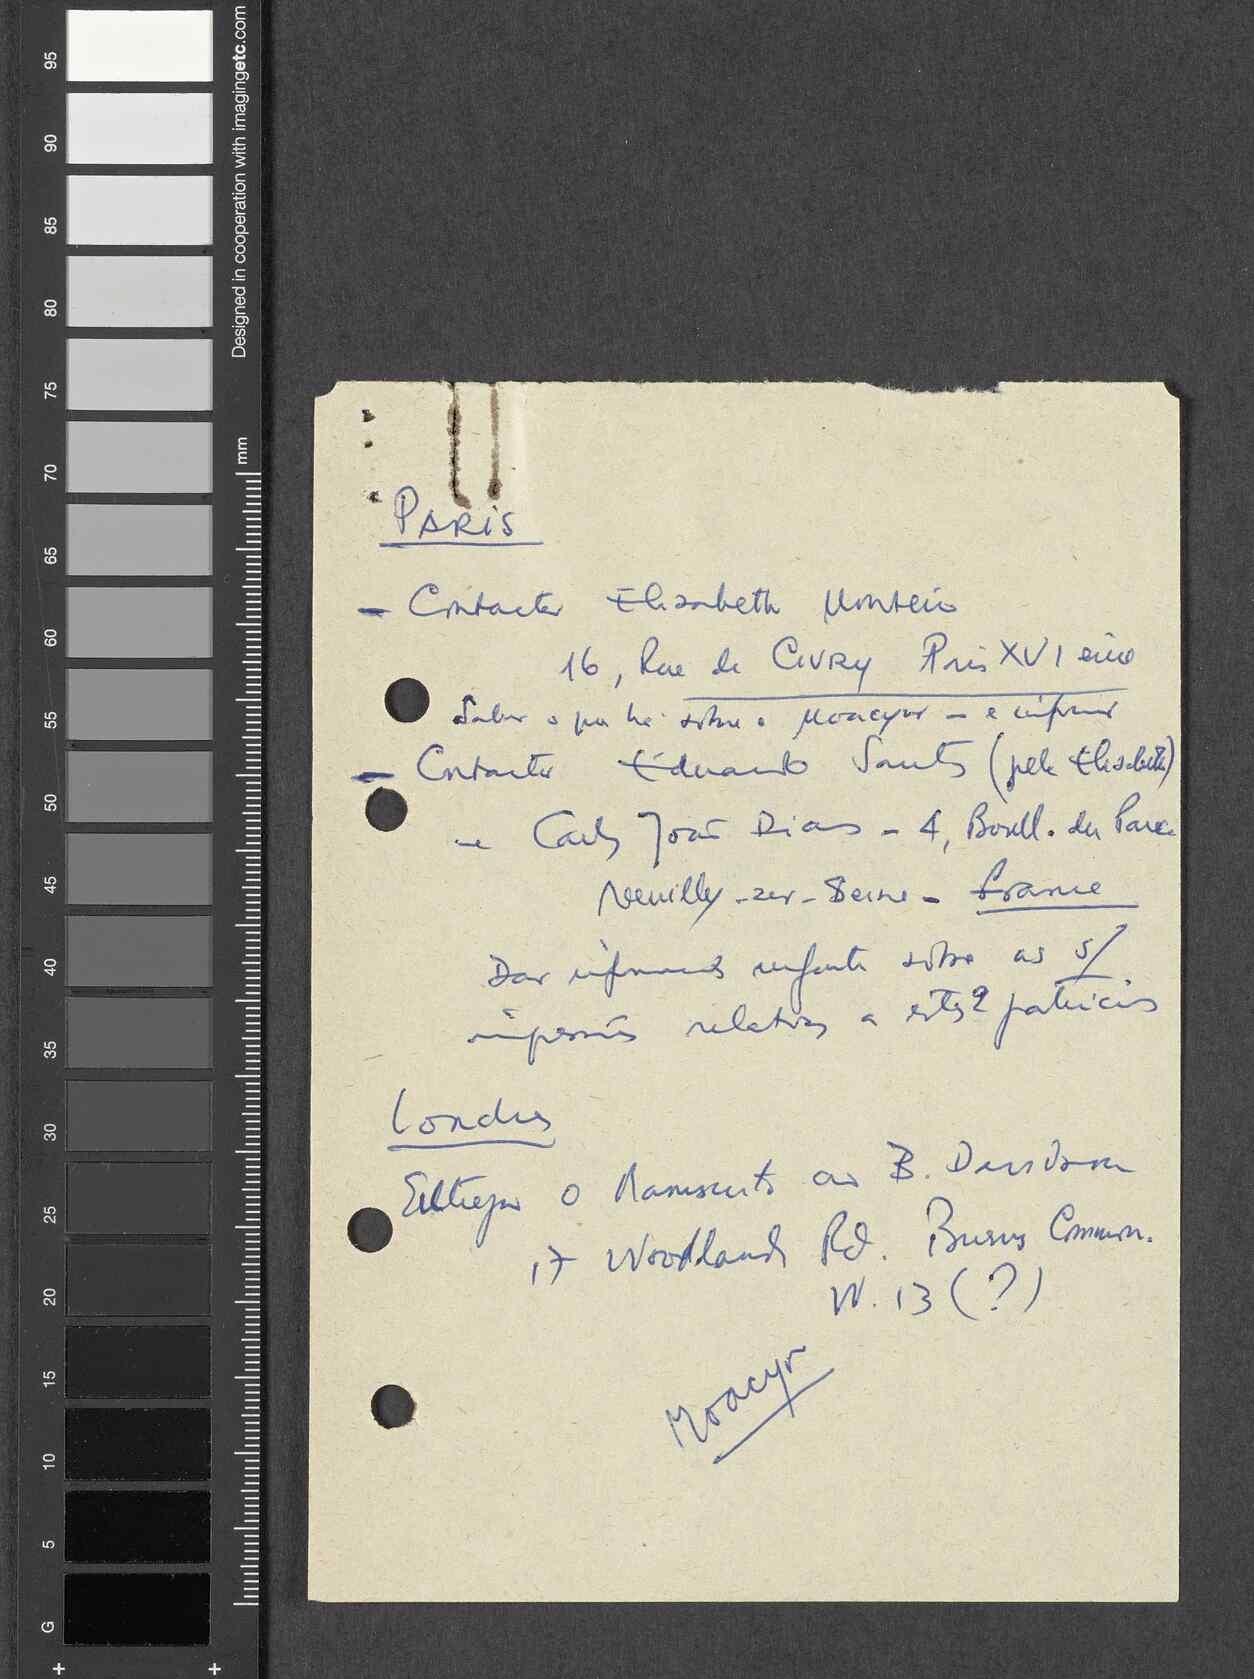 95
90
85
80
75
70
65
60
55
50
45
40
35
30
25
20
15
10
5
G
Designed in cooperation with imagingetc.com
mm
PARIS
- Contacter Elisabeth Monteiro
16, Rue de CIVRY Paris XVI eme
Saber o que há sobre o Moacyr - e informar
- Contacter Eduardo Santos (pela Elisabeth)
- e Carlos João Dias - 4, Boull. du Parc
Neuilly-sur-Seine - France
Dar informes sobre as s/
impressões relativas a estes 2 patrícios
Londres
Entregar o Manuscrito ao B. Davidson
17 Woodlands Rd. Burns Common.
W. 13 (?)
Moacyr